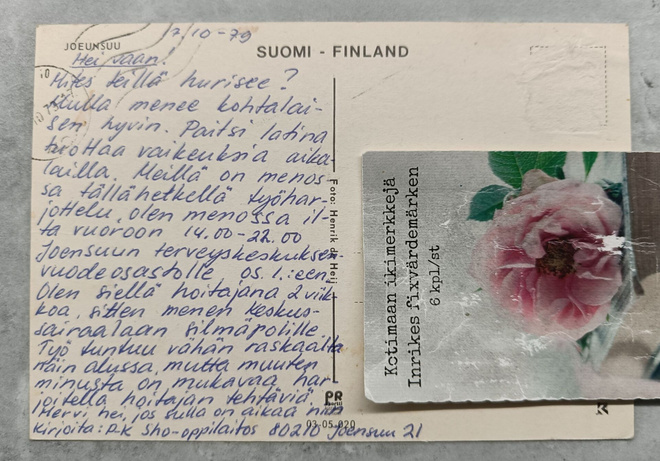 JOEUNSUU
7/10-79
SUOMI - FINLAND
Hei vaan.
Mites teillä hurisee?
Mulla menee kohtalai-
sen hyvin. Paitsi latina
tuottaa vaikeuksia aika-
lailla. Meillä on menos-
sa tällähetkellä työhar-
jottelu, olen menossa il-
ta vuoroon 14.00-22.00
Joensuun terveyskeskuksen
vuodeosastolle os. 1.:een
Olen siellä hoitajana 2 viik-
koa, sitten menen keskus-
sairaalaan silmäpolille.
Työ tuntuu vähän raskaalta
näin alussa, mutta muuten
minusta on mukavaa har-
joitella hoitajan tehtäviä
Mervi hei, jos sulla on aikaa niin
kirjoita: P-K Sho-oppilaitos 80210 Joensuu 21
Foto: Henrik de Heij
PR
03.05.020
Kotimaan ikimerkkejä
Inrikes fixvärdemärken
6 kpl/st